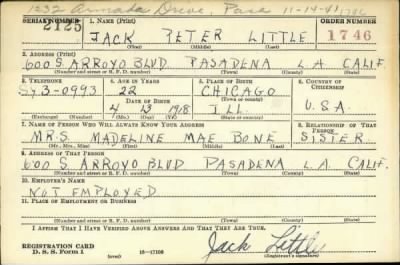 1232 Armada Drive, Pasa 11-14-41
SERIAL NUMBER 2125 1. NAME (Print) ORDER NUMBER
JACK PETER LITTLE 1746
(First) (Middle) (Last)
2. ADDRESS (Print)
600 S. ARROYO BLVD. PASADENA L.A. CALIF.
(Number and street or R. F. D. number) (Town) (County) (State)
3. TELEPHONE 4. AGE IN YEARS 5. PLACE OF BIRTH 6. COUNTRY OF CITIZENSHIP
Sy 3-0993 22 CHICAGO
DATE OF BIRTH (Town or county)
4 13 1918 ILL. U.S.A
(Exchange) (Number) (Mo.) (Day) (Yr.) (State or country)
7. NAME OF PERSON WHO WILL ALWAYS KNOW YOUR ADDRESS 8. RELATIONSHIP OF THAT PERSON
MRS. MADELINE MAE BONE SISTER
(Mr., Mrs., Miss) (First) (Middle) (Last)
9. ADDRESS OF THAT PERSON
600 S. ARROYO BLVD PASADENA L.A. CALIF.
(Number and street or R. F. D. number) (Town) (County) (State)
10. EMPLOYER'S NAME
NOT EMPLOYED
11. PLACE OF EMPLOYMENT OR BUSINESS
(Number and street or R. F. D. number) (Town) (County) (State)
I AFFIRM THAT I HAVE VERIFIED ABOVE ANSWERS AND THAT THEY ARE TRUE.
REGISTRATION CARD
D. S. S. Form 1 (over) 16-17105 Jack Little
(Registrant's signature)